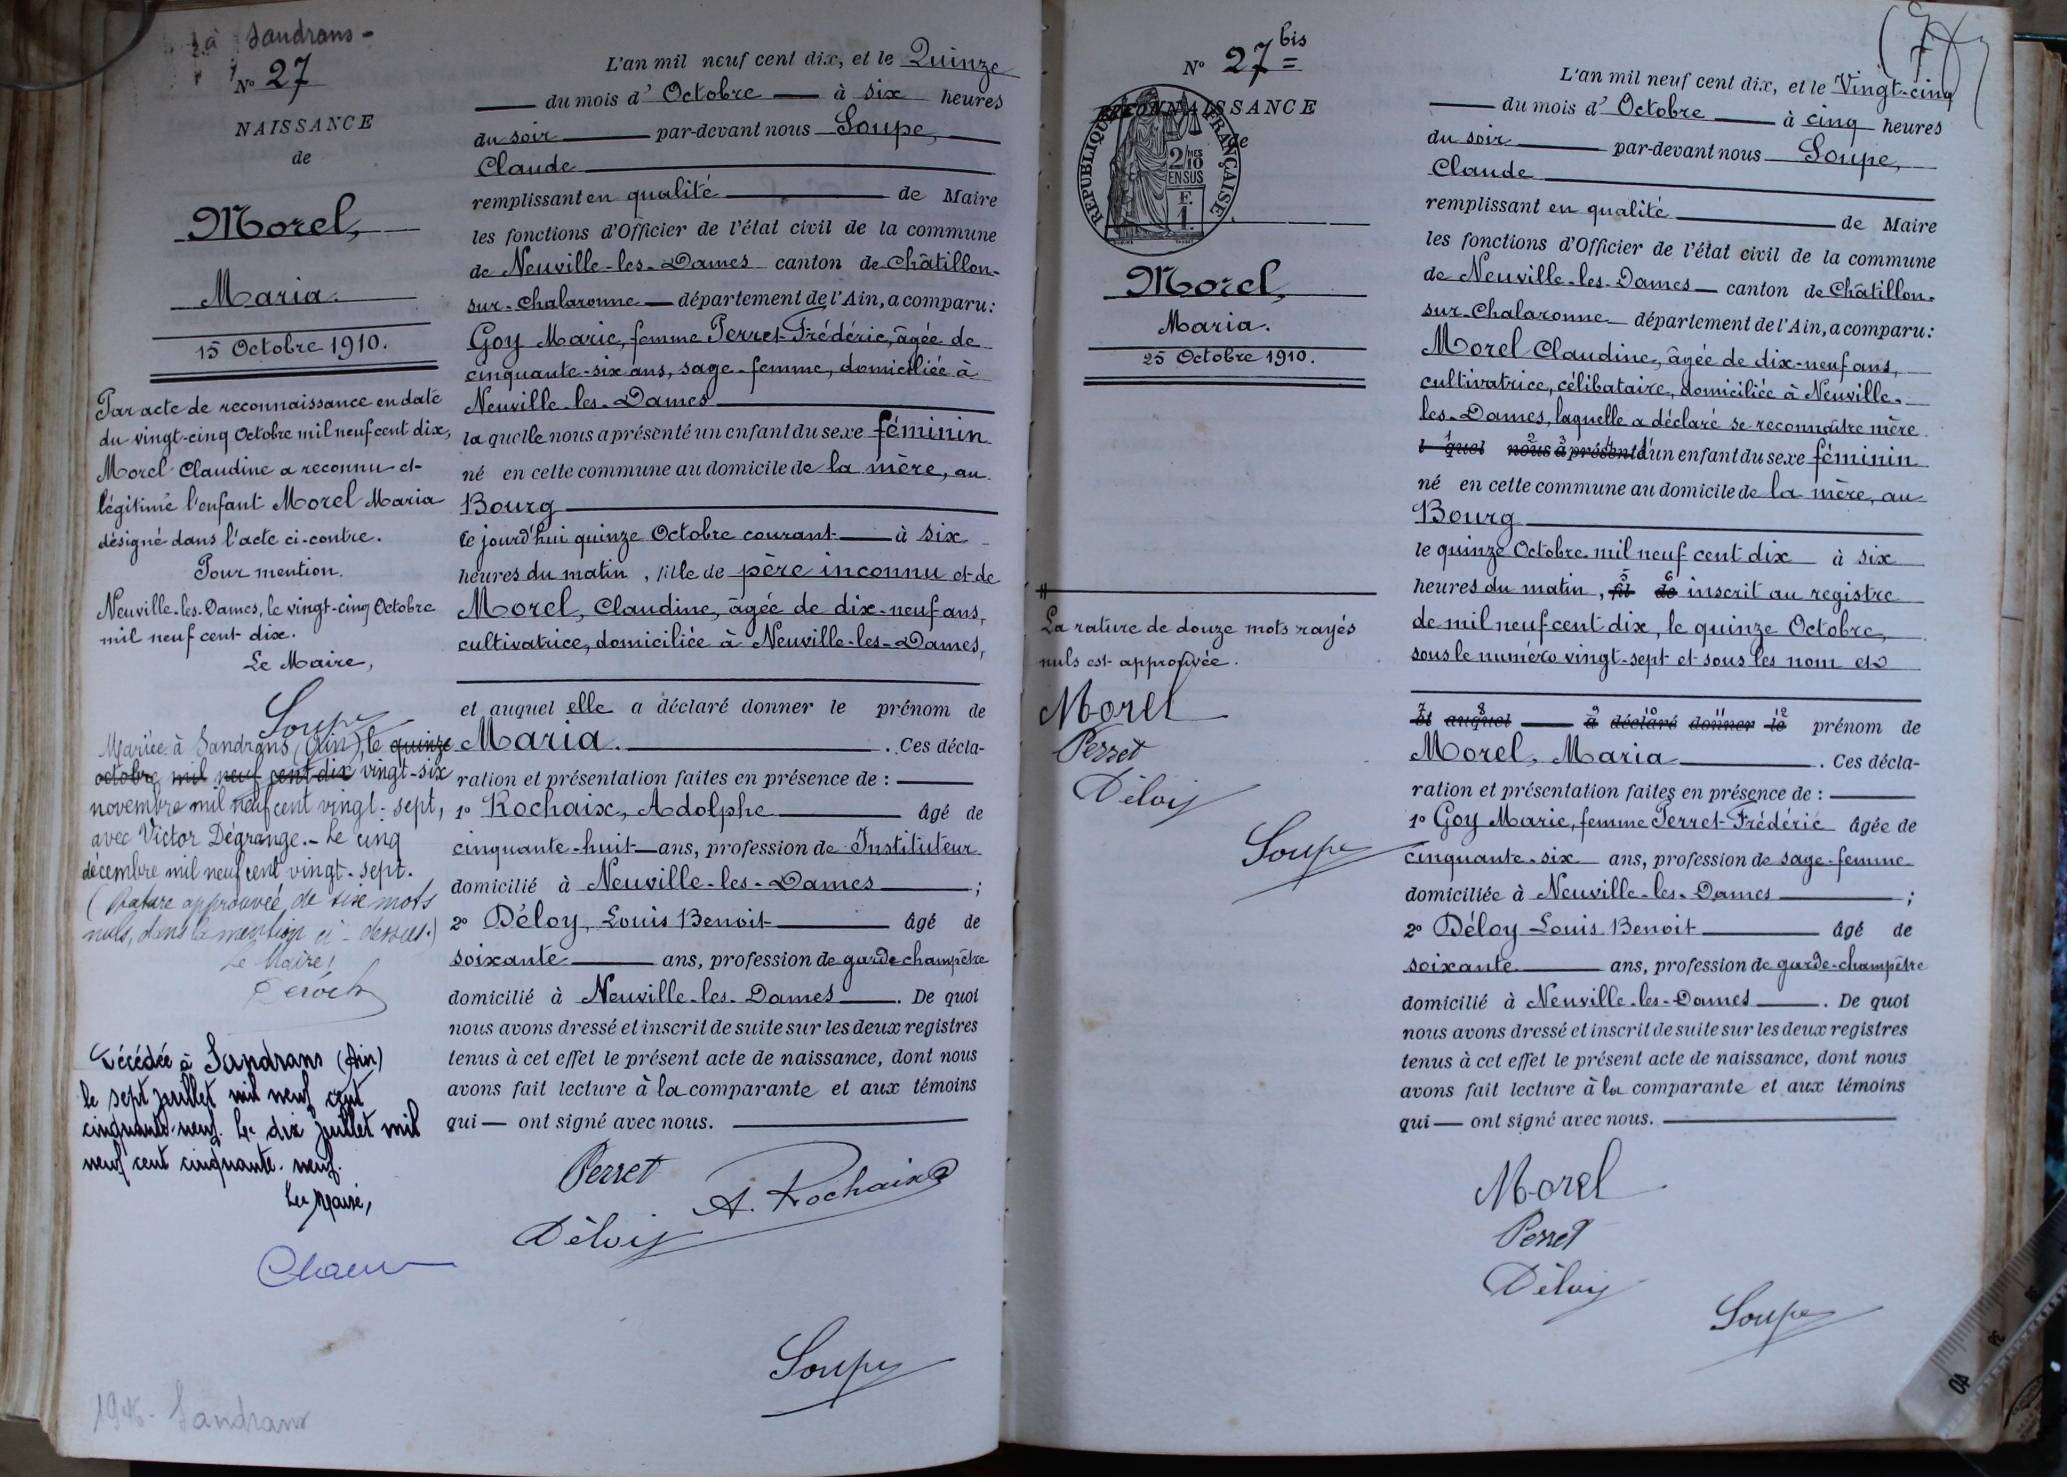 à Sandrans -
N° 27
NAISSANCE
de
Morel,
Maria.
15 Octobre 1910.
Par acte de reconnaissance en date
du vingt-cinq Octobre mil neuf cent dix,
Morel Claudine a reconnu et
légitimé l'enfant Morel Maria
désigné dans l'acte ci-contre.
Pour mention.
Neuville-les-Dames, le vingt-cinq Octobre
mil neuf cent dix.
Le Maire,
Soupe
Mariée à Sandrans (Ain), le quinze
octobre mil neuf cent dix vingt-six
novembre mil neuf cent vingt-sept,
avec Victor Dégrange. - Le cinq
décembre mil neuf cent vingt-sept.
(Rature approuvée de six mots
nuls, dans la mention ci-dessus.)
Le Maire,
Décédée à Sandrans (Ain)
le sept juillet mil neuf cent
cinquante-neuf. Le dix juillet mil
neuf cent cinquante-neuf.
Le Maire,
Sandrans
L'an mil neuf cent dix, et le Quinze
du mois d'Octobre à six heures
du soir par-devant nous Soupe,
Claude
remplissant en qualité de Maire
les fonctions d'Officier de l'état civil de la commune
de Neuville-les-Dames canton de Châtillon-
sur-Chalaronne département de l'Ain, a comparu :
Goy Marie, femme Perret Frédéric, âgée de
cinquante-six ans, sage-femme, domiciliée à
Neuville-les-Dames
la quelle nous a présenté un enfant du sexe féminin
né en cette commune au domicile de la mère, au
Bourg
ce jourd'hui quinze Octobre courant à six
heures du matin, fille de père inconnu et de
Morel, Claudine, âgée de dix-neuf ans,
cultivatrice, domiciliée à Neuville-les-Dames,
et auquel elle a déclaré donner le prénom de
Maria. . Ces décla-
ration et présentation faites en présence de :
1° Rochaix, Adolphe Âgé de
cinquante-huit ans, profession de Instituteur
domicilié à Neuville-les-Dames ;
2° Déloy, Louis Benoit Âgé de
soixante ans, profession de garde champêtre
domicilié à Neuville-les-Dames . De quoi
nous avons dressé et inscrit de suite sur les deux registres
tenus à cet effet le présent acte de naissance, dont nous
avons fait lecture à la comparante et aux témoins
qui ont signé avec nous.
Perret
A. Rochaix
Déloy
Soupe
N° 27 bis
RECONNAISSANCE
de
REPUBLIQUE FRANÇAISE
2/10 MES
EN SUS
F.
1.
Morel,
Maria.
25 Octobre 1910.
La rature de douze mots rayés
nuls est approuvée.
Morel
Perret
Déloy
Soupe
L'an mil neuf cent dix, et le Vingt-cinq
du mois d'Octobre à cinq heures
du soir par-devant nous Soupe,
Claude
remplissant en qualité de Maire
les fonctions d'Officier de l'état civil de la commune
de Neuville-les-Dames canton de Châtillon-
sur-Chalaronne département de l'Ain, a comparu :
Morel Claudine, âgée de dix-neuf ans,
cultivatrice, célibataire, domiciliée à Neuville-
les-Dames, laquelle a déclaré se reconnaître mère
1 2 3 4
l quel nous a présenté d'un enfant du sexe féminin
né en cette commune au domicile de la mère, au
Bourg
le quinze Octobre mil neuf cent dix à six
5 6
heures du matin, fil de inscrit au registre
de mil neuf cent dix, le quinze Octobre,
sous le numéro vingt-sept et sous les nom et
7 8 9 10 11 12
et auquel a déclaré donner le prénom de
Morel, Maria . Ces décla-
ration et présentation faites en présence de :
1° Goy Marie, femme Perret Frédéric Âgée de
cinquante-six ans, profession de sage-femme
domiciliée à Neuville-les-Dames ;
2° Déloy Louis Benoit Âgé de
soixante ans, profession de garde-champêtre
domicilié à Neuville-les-Dames . De quoi
nous avons dressé et inscrit de suite sur les deux registres
tenus à cet effet le présent acte de naissance, dont nous
avons fait lecture à la comparante et aux témoins
qui ont signé avec nous.
Morel
Perret
Déloy
Soupe
40